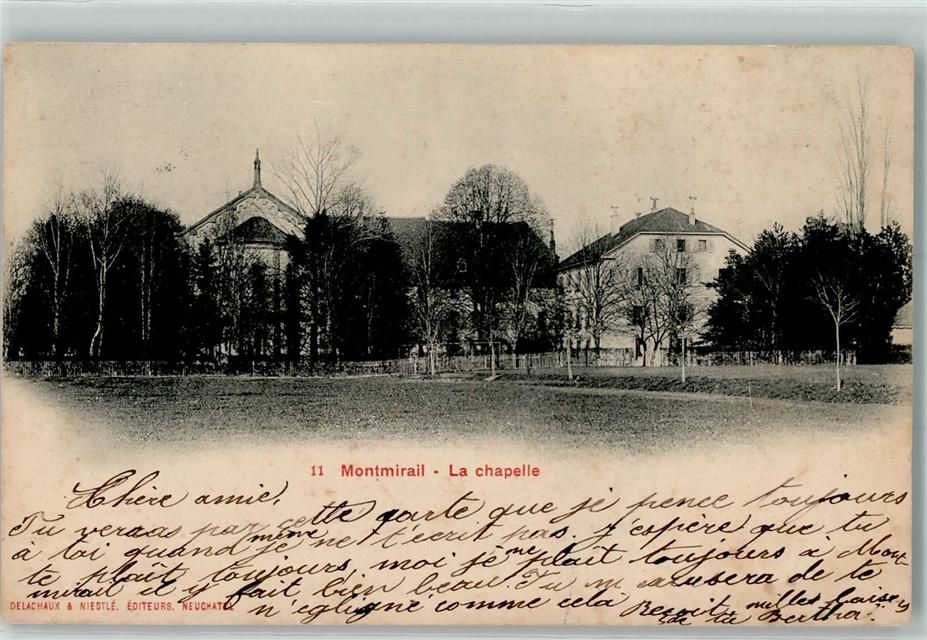 11 Montmirail - La chapelle
Chère amie,
Tu verras par cette carte que je pence toujours
à toi quand même je ne t'ecrit pas. J'espère que tu
te plaît toujours, moi je me plaît toujours à Mont-
mirail il y fait bien beau. Tu m'excusera de te
n'egligne comme cela Resoit milles baisers
de ta Bertha.
DELACHAUX & NIESTLÉ, ÉDITEURS, NEUCHATEL